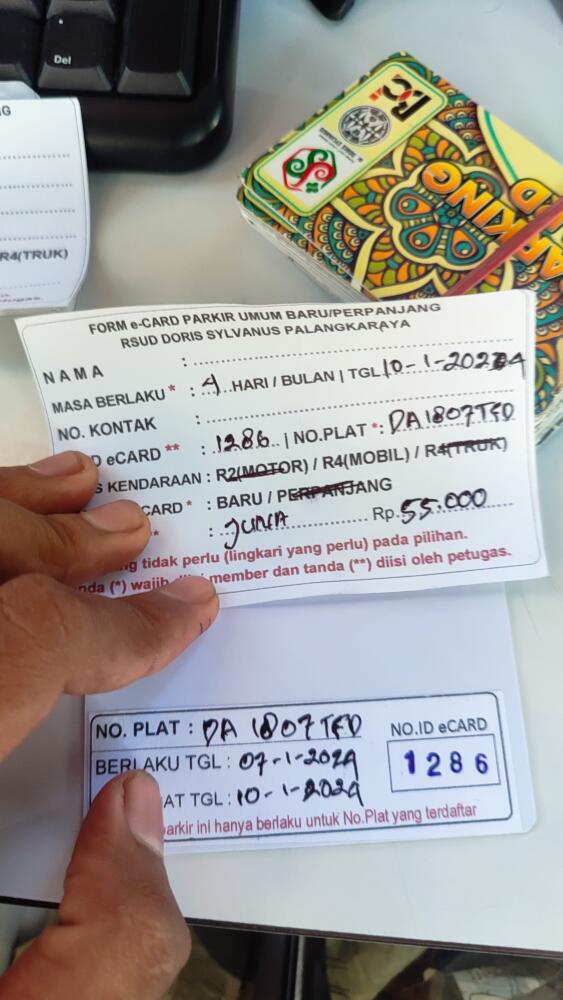 Del
G
R4(TRUK)
PARKING
FORM e-CARD PARKIR UMUM BARU/PERPANJANG
RSUD DORIS SYLVANUS PALANGKARAYA
NAMA :
MASA BERLAKU * : 4 HARI / BULAN | TGL 10-1-2024
NO. KONTAK :
D eCARD ** : 1286 | NO.PLAT *: DA 1807 TFD
S KENDARAAN : R2(MOTOR) / R4(MOBIL) / R4(TRUK)
CARD * : BARU / PERPANJANG
** : JUNA Rp. 55.000
g tidak perlu (lingkari yang perlu) pada pilihan.
nda (*) wajib member dan tanda (**) diisi oleh petugas.
NO. PLAT : DA 1807 TFD
NO.ID eCARD
BERLAKU TGL : 07-1-2024
1286
AT TGL : 10-1-2024
parkir ini hanya berlaku untuk No.Plat yang terdaftar